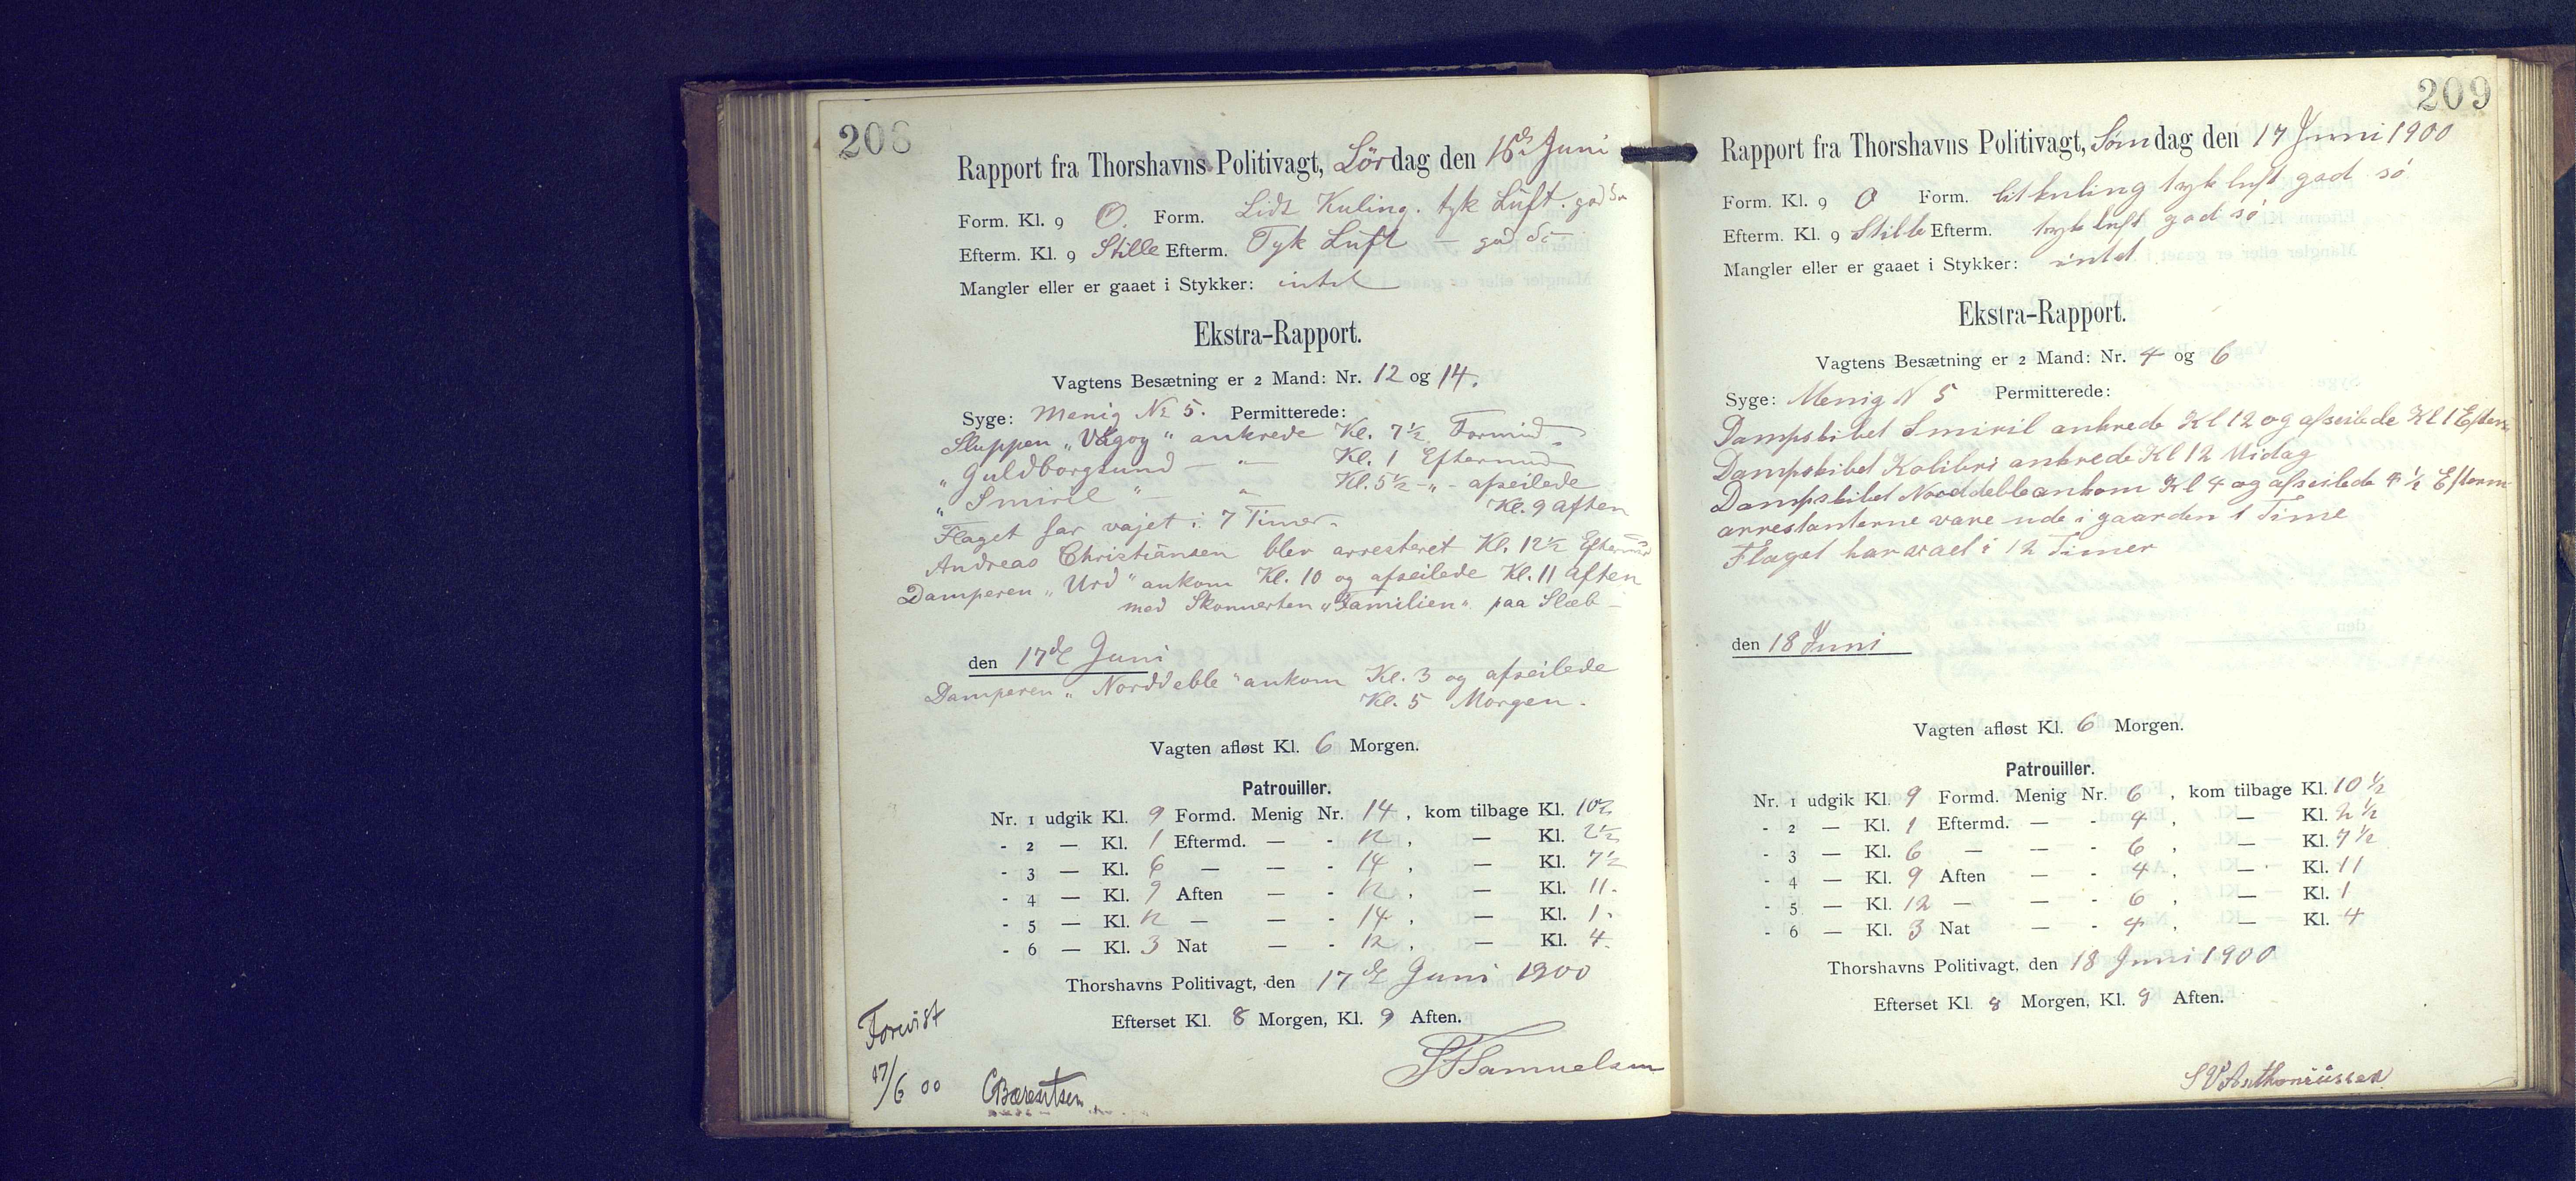 208
Rapport fra Thorshavns Politivagt, Lördag den 16de Juni
Form. Kl. 9 O. Form. Lidt Kuling. tyk Luft. god Sø
Efterm. Kl. 9 Stille Efterm. Tyk Luft — god Sö —
Mangler eller er gaaet i Stykker: intet
Ekstra-Rapport.
Vagtens Besætning er 2 Mand: Nr. 12 og 14.
Syge: Menig No 5. Permitterede:
Sluppen „Vågoy“ ankrede Kl. 7½ Formid.
„Guldborgsund — „ — Kl. 1 Eftermid
„Smiril“ — „ Kl. 5½ - „ - afseilede
Kl. 9 aften
Flaget har vajet i 7 Timer.
Andreas Christiansen blev arresteret Kl. 12½ Eftermid
Damperen „Urd“ ankom Kl. 10 og afseilede Kl. 11 aften
med Skonnerten „Familien“ paa Slæb —
den 17de Juni
Damperen „Norddeble“ ankom Kl. 3 og afseilede
Kl. 5 Morgen.
Vagten afløst Kl. 6 Morgen.
Patrouiller.
Nr. 1 udgik Kl. 9 Formd. Menig Nr. 14, kom tilbage Kl. 10½
- 2 — Kl. 1 Eftermd. — - 12, — Kl. 2½
- 3 — Kl. 6 — — - 14, — Kl. 7½
- 4 — Kl. 9 Aften — - 12, — Kl. 11.
- 5 — Kl. 12 — — - 14, — Kl. 1.
- 6 — Kl. 3 Nat — - 12, — Kl. 4.
Thorshavns Politivagt, den 17de Juni 1900
Efterset Kl. 8 Morgen, Kl. 9 Aften.
Forevist
17/6 00
Samuelsen
209
Rapport fra Thorshavns Politivagt, Söndag den 17 Juni 1900
Form. Kl. 9 O Form. lit kuling tyk luft god sö
Efterm. Kl. 9 Stille Efterm. tyk luft god sö
Mangler eller er gaaet i Stykker: intet
Ekstra-Rapport.
Vagtens Besætning er 2 Mand: Nr. 4 og 6
Syge: Menig N 5 Permitterede:
Dampskibet Smiril ankrede Kl 12 og afseilede Kl 1 Efterm
Dampskibet Kolibri ankrede Kl 12 Midag
Dampskibet Norddeble ankom Kl 4 og afseilede 4½ Efterm
arrestanterne vare ude i gaarden 1 Time
Flaget har vaet i 12 Timer
den 18 Juni
Vagten afløst Kl. 6 Morgen.
Patrouiller.
Nr. 1 udgik Kl. 9 Formd. Menig Nr. 6, kom tilbage Kl. 10½
- 2 — Kl. 1 Eftermd. — - 4, — Kl. 2½
- 3 — Kl. 6 — — - 6, — Kl. 7½
- 4 — Kl. 9 Aften — - 4, — Kl. 11
- 5 — Kl. 12 — — - 6, — Kl. 1
- 6 — Kl. 3 Nat — - 4, — Kl. 4
Thorshavns Politivagt, den 18 Juni 1900
Efterset Kl. 8 Morgen, Kl. 9 Aften.